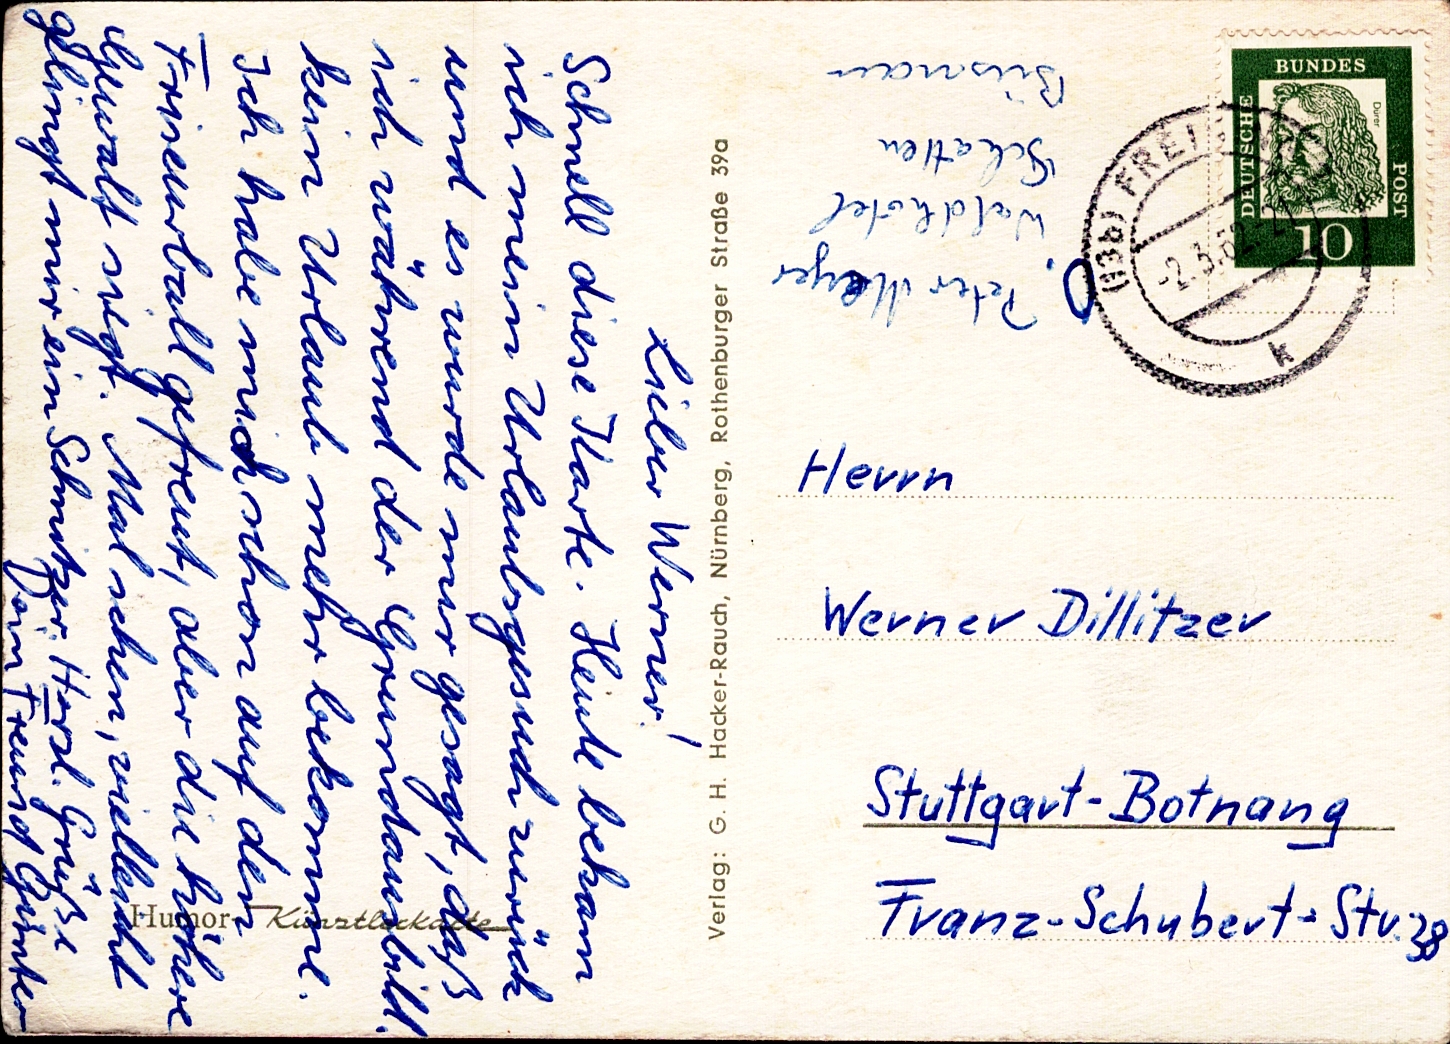 Lieber Werner!
Schnell diese Karte. Heute bekam
ich mein Urlaubsgesuch zurück
und es wurde mir gesagt, daß
ich während der Grundausbild.
kein Urlaub mehr bekomme.
Ich habe mich schon auf den
Friseurball gefreut, aber die höhere
Gewalt siegt. Mal sehen, vielleicht
gelingt mir ein Schnitzer. Herzl. Grüße
Dein Freund Günter
Humor-Künstlerkarte
Verlag: G. H. Hacker-Rauch, Nürnberg, Rothenburger Straße 39a
Peter Meyer
Waldhotel
Schatten
Büsnau
DEUTSCHE
BUNDES
POST
Dürer
10
(13b) FREISING
-2.3.62-21
k
Herrn
Werner Dillitzer
Stuttgart-Botnang
Franz-Schubert-Str. 38